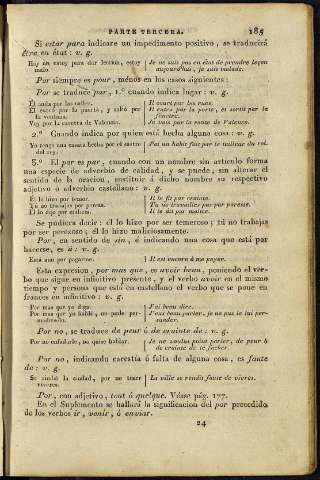 PARTE TERCERA. 185
Si estar para indicare un impedimento positivo, se traducirá
être en état : v. g.
Hoy sin estoy para dar leccion, estoy malo. | Je ne suis pas en état de prendre leçon aujourd'hui, je suis malade.
Por siempre es pour, ménos en los casos siguientes:
Por se traduce par, 1.º cuando indica lugar : v. g.
Él anda por las calles. | Il court par les rues.
Él entró por la puerta, y salió por la ventana. | Il entra par la porte, et sortit par la fenêtre.
Voy por la carrera de Valencia. | Je vais par la route de Valence.
2.º Cuando indica por quien está hecha alguna cosa : v. g.
Yo tengo una casaca hecha por el sastre del rey. | J'ai un habit fait par le tailleur du roi.
3.º El por es par, cuando con un nombre sin artículo forma
una especie de adverbio de calidad, y se puede, sin alterar el
sentido de la oracion, sustituir á dicho nombre su respectivo
adjetivo ó adverbio castellano : v. g.
Él lo hizo por temor. | Il le fit par crainte.
Tú no trabajas por pereza. | Tu ne travailles pas par paresse.
Él lo dijo por malicia. | Il le dit par malice.
Se pudiera decir: él lo hizo por ser temeroso; tú no trabajas
por ser perezoso; él lo hizo maliciosamente.
Por, en sentido de sin, é indicando una cosa que está por
hacerse, es à : v. g.
Está aun por pagarme. | Il est encore à me payer.
Esta expresion, por mas que, es avoir beau, poniendo el verbo
que sigue en infinitivo presente, y el verbo avoir en el mismo
tiempo y persona que está en castellano el verbo que se pone en
frances en infinitivo : v. g.
Por mas que yo diga. | J'ai beau dire.
Por mas que yo hablé, no pude persuadirle. | J'eus beau parler, je ne pus le persuader.
Por no, se traduce de peur ó de crainte de : v. g.
Por no enfadarle, no quise hablar. | Je ne voulus point parler, de peur ó de crainte de le fâcher.
Por no, indicando carestía ó falta de alguna cosa, es faute
de : v. g.
Se rindió la ciudad, por no tener víveres. | La ville se rendit faute de vivres.
Por, con adjetivo, tout ó quelque. Véase pág. 177.
En el Suplemento se hallará la significacion del por precedido
de los verbos ir, venir, ó enviar.
24